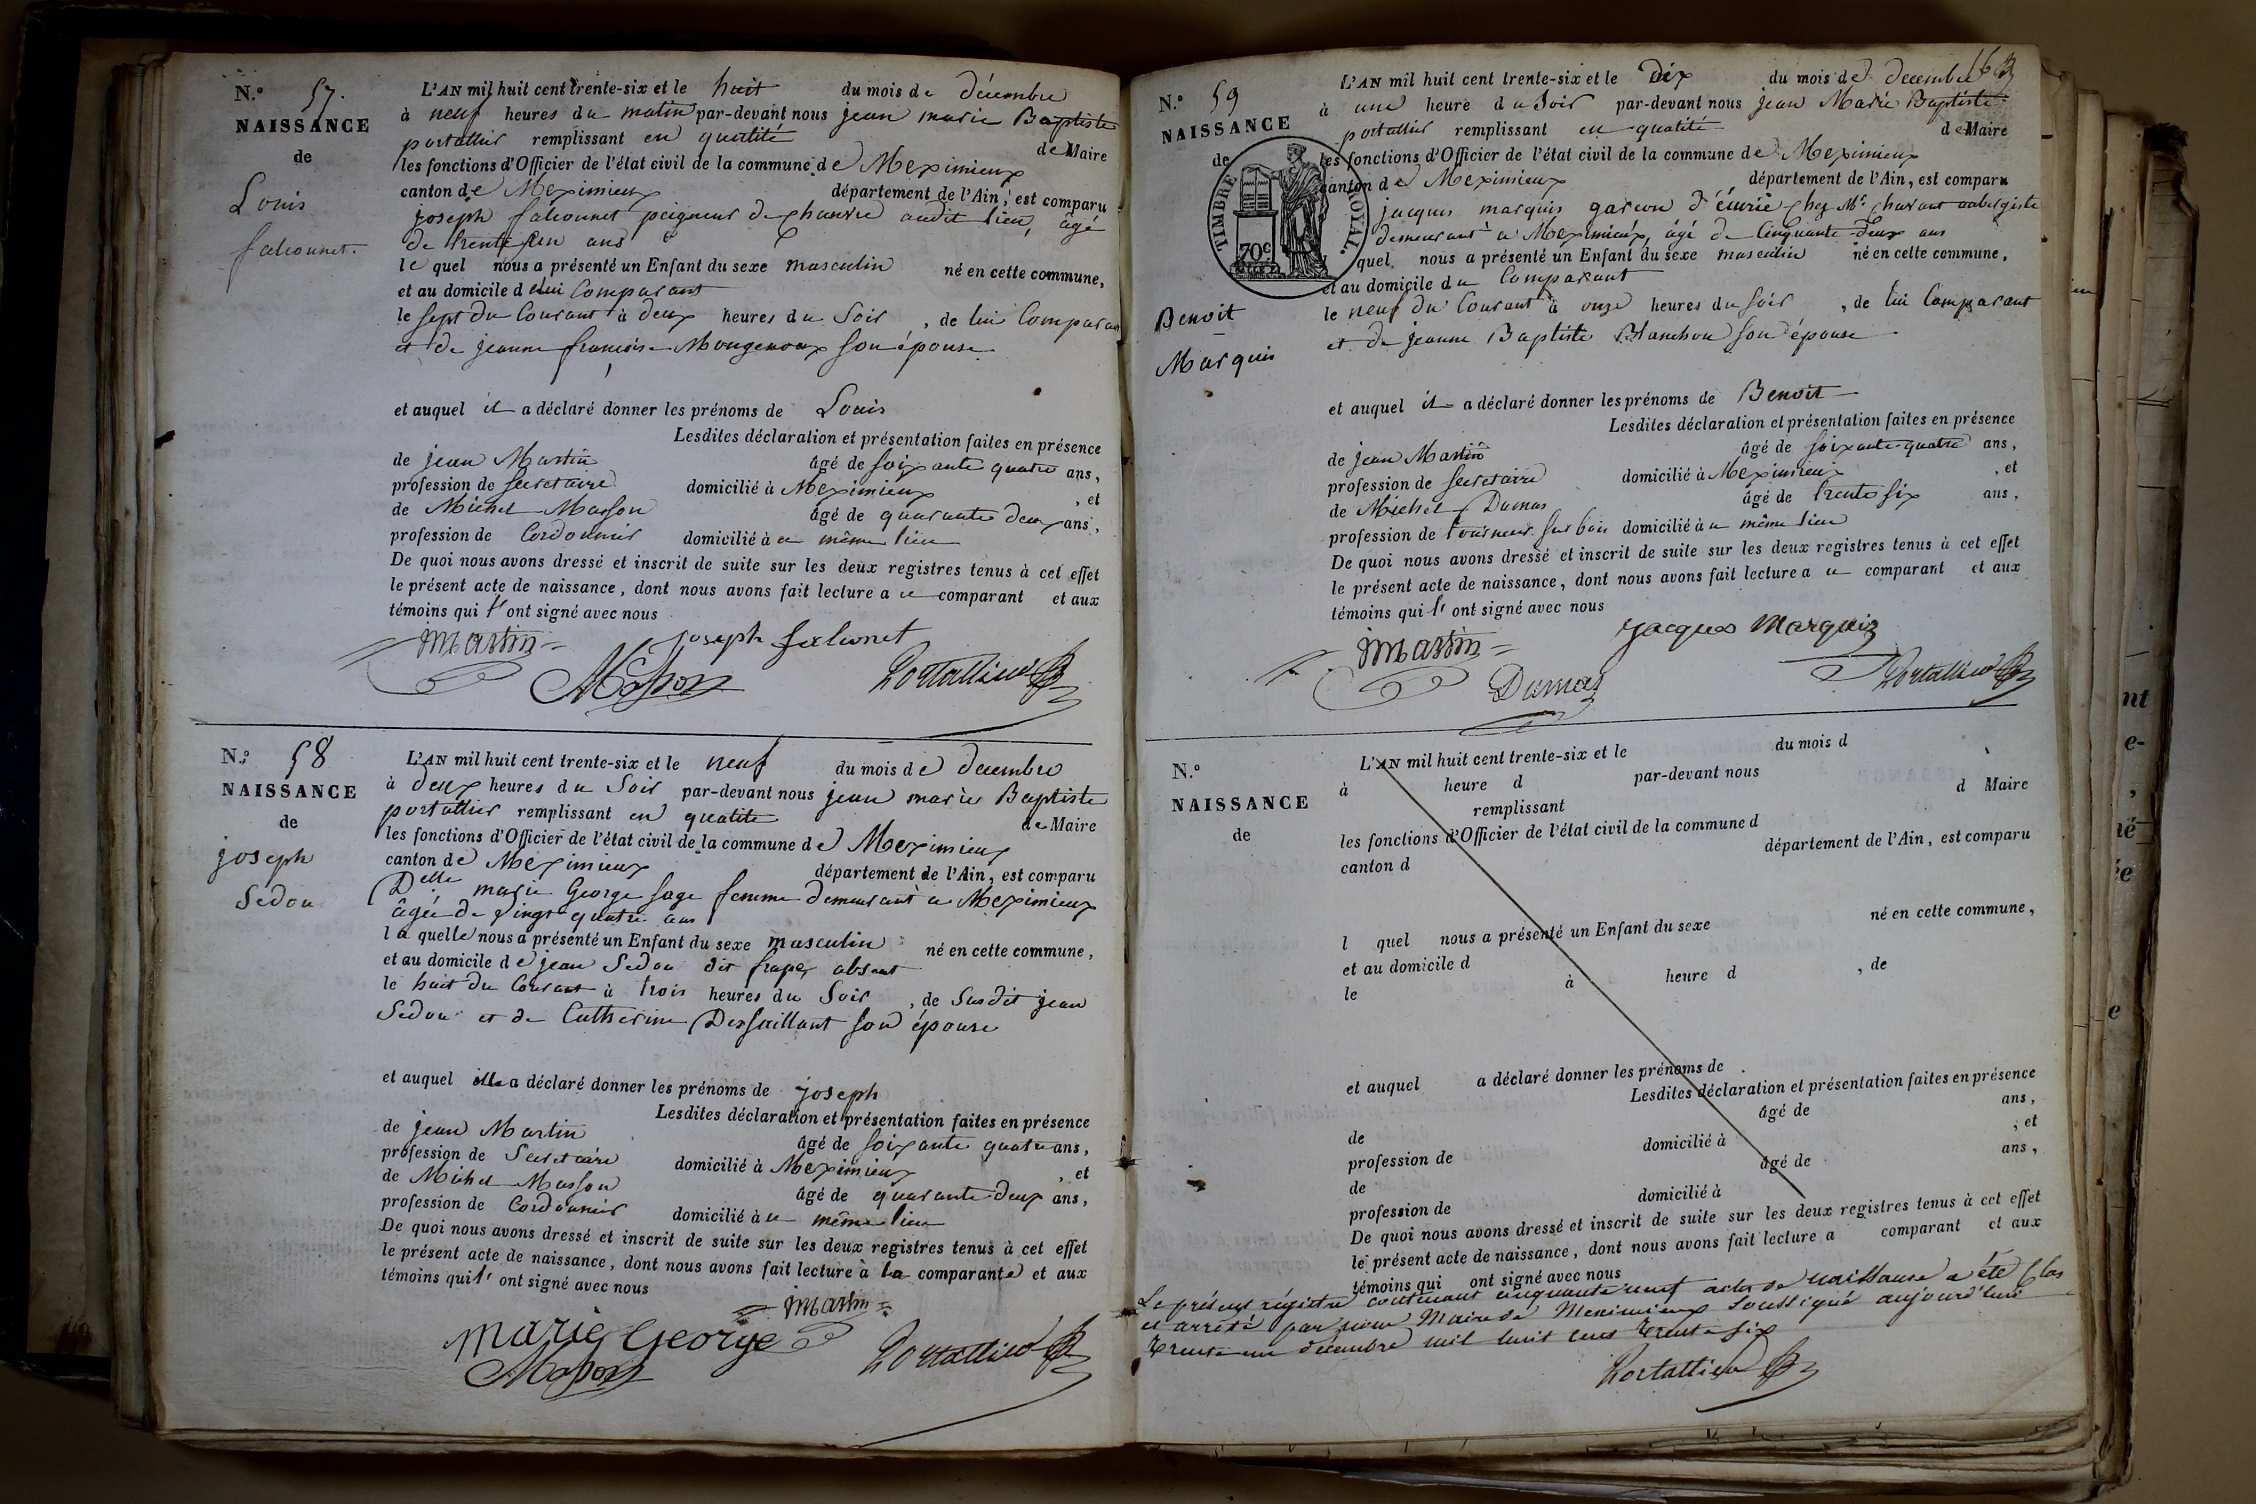 N.o 57.
NAISSANCE
de
Louis
falconnet.
L'AN mil huit cent trente-six et le huit du mois de décembre
à neuf heures du matin par-devant nous jean marie Baptiste
portallier remplissant en qualité de Maire
les fonctions d'Officier de l'état civil de la commune de Meximieux
canton de Meximieux département de l'Ain, est comparu
joseph falconnet peigneur de chanvre audit lieu, âgé
de trente un ans
le quel nous a présenté un Enfant du sexe masculin né en cette commune,
et au domicile de lui Comparant
le sept du Courant à deux heures du Soir, de lui Comparant
et de jeanne françoise Mongenoux son épouse
et auquel il a déclaré donner les prénoms de Louis
Lesdites déclaration et présentation faites en présence
de jean Martin âgé de soixante quatre ans,
profession de secretaire domicilié à Meximieux, et
de Michel Masson âgé de quarante deux ans,
profession de Cordonnier domicilié à ce même lieu
De quoi nous avons dressé et inscrit de suite sur les deux registres tenus à cet effet
le présent acte de naissance, dont nous avons fait lecture a ce comparant et aux
témoins qui l'ont signé avec nous
Martin joseph falconet
Masson Portallier
N.o 58
NAISSANCE
de
joseph
Sedou
L'AN mil huit cent trente-six et le neuf du mois de décembre
à deux heures du Soir par-devant nous jean marie Baptiste
portallier remplissant en qualité de Maire
les fonctions d'Officier de l'état civil de la commune de Meximieux
canton de Meximieux département de l'Ain, est comparu
Delle marie George sage femme demeurant à Meximieux
âgée de vingt quatre ans
la quelle nous a présenté un Enfant du sexe masculin né en cette commune,
et au domicile de jean Sedou dit absent
le huit du Courant à trois heures du Soir, de Susdit jean
Sedou et de Catherine Dessaillant son épouse
et auquel elle a déclaré donner les prénoms de joseph
Lesdites déclaration et présentation faites en présence
de jean Martin âgé de soixante quatre ans,
profession de Secretaire domicilié à Meximieux, et
de Michel Masson âgé de quarante deux ans,
profession de Cordonnier domicilié à ce même lieu
De quoi nous avons dressé et inscrit de suite sur les deux registres tenus à cet effet
le présent acte de naissance, dont nous avons fait lecture à la comparante et aux
témoins qui l'ont signé avec nous
Martin
Marie George
Masson Portallier
N.o 59
NAISSANCE
de
TIMBRE ROYAL.
70c
Benoit
Marquis
L'AN mil huit cent trente-six et le Dix du mois de decembre
à une heure du Soir par-devant nous jean Marie Baptiste
portallier remplissant en qualité de Maire
les fonctions d'Officier de l'état civil de la commune de Meximieux
canton de Meximieux département de l'Ain, est comparu
jacques marquis garcon d'écurie chez Mr. Charant aubergiste
demeurant à Meximieux, âgé de Cinquante-deux ans
quel nous a présenté un Enfant du sexe masculin né en cette commune,
et au domicile du Comparant
le neuf du Courant à onze heures du Soir, de lui Comparant
et de jeanne Baptiste Blanchon son épouse
et auquel il a déclaré donner les prénoms de Benoit
Lesdites déclaration et présentation faites en présence
de jean Martin âgé de soixante-quatre ans,
profession de secretaire domicilié à Meximieux, et
de Michel Dumas âgé de trente six ans,
profession de tourneur sur bois domicilié à ce même lieu
De quoi nous avons dressé et inscrit de suite sur les deux registres tenus à cet effet
le présent acte de naissance, dont nous avons fait lecture a ce comparant et aux
témoins qui l'ont signé avec nous
Martin Jacques Marquis
Dumas Portallier
N.o
NAISSANCE
de
L'AN mil huit cent trente-six et le du mois d
à heure d par-devant nous
remplissant d Maire
les fonctions d'Officier de l'état civil de la commune d
canton d département de l'Ain, est comparu
l quel nous a présenté un Enfant du sexe né en cette commune,
et au domicile d
le à heure d , de
et auquel a déclaré donner les prénoms de
Lesdites déclaration et présentation faites en présence
de âgé de ans,
profession de domicilié à , et
de âgé de ans,
profession de domicilié à
De quoi nous avons dressé et inscrit de suite sur les deux registres tenus à cet effet
le présent acte de naissance, dont nous avons fait lecture a comparant et aux
témoins qui ont signé avec nous
Le présent régistre contenant cinquante neuf actes de naissance a été clos
et arrêté par nous Maire de Meximieux soussigné aujourd'hui
trente un décembre mil huit cent trente six
Portallier